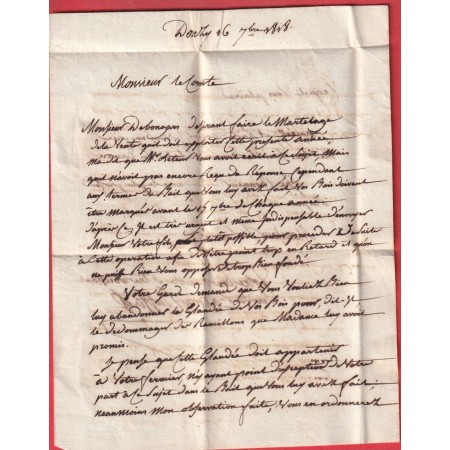 16 7bre 1818
Monsieur le Comte
Monsieur Debonopes desirant faire le Martelage
de la Vente qui doit exploiter Cette presente Année,
m'a dit que Mr vous avoit écrit à Ce Sujet Mais
qu'il n'avoit pas encore Reçu de Réponse, Cependant
aux termes du Bail que Vous luy avez fait Vos Bois doivent
être Marqués avant le 15 7bre de Chaque année.
d'après Ce, il est très urgent et même Indispensable d'envoyer
Monsieur Votre le plutot possible pour proceder de Suite
à Cette operation afin d'être point trop en Retard et qu'on
ne puisse Rien Vous opposer de trop Bien fondé
Votre Garde demande que Vous Vouliez Bien
luy abandonner la Glandée de Vos Bois pour, dit-il
le dedommager des Ramillons que Madame luy avoit
promis.
Je pense que Cette Glandée doit appartenir
à Votre fermier, n'y ayant point d'exception de Votre
part à Ce Sujet dans le Bail que Vous luy avez fait.
neanmoins Mon observation faite, Vous en ordonnerez